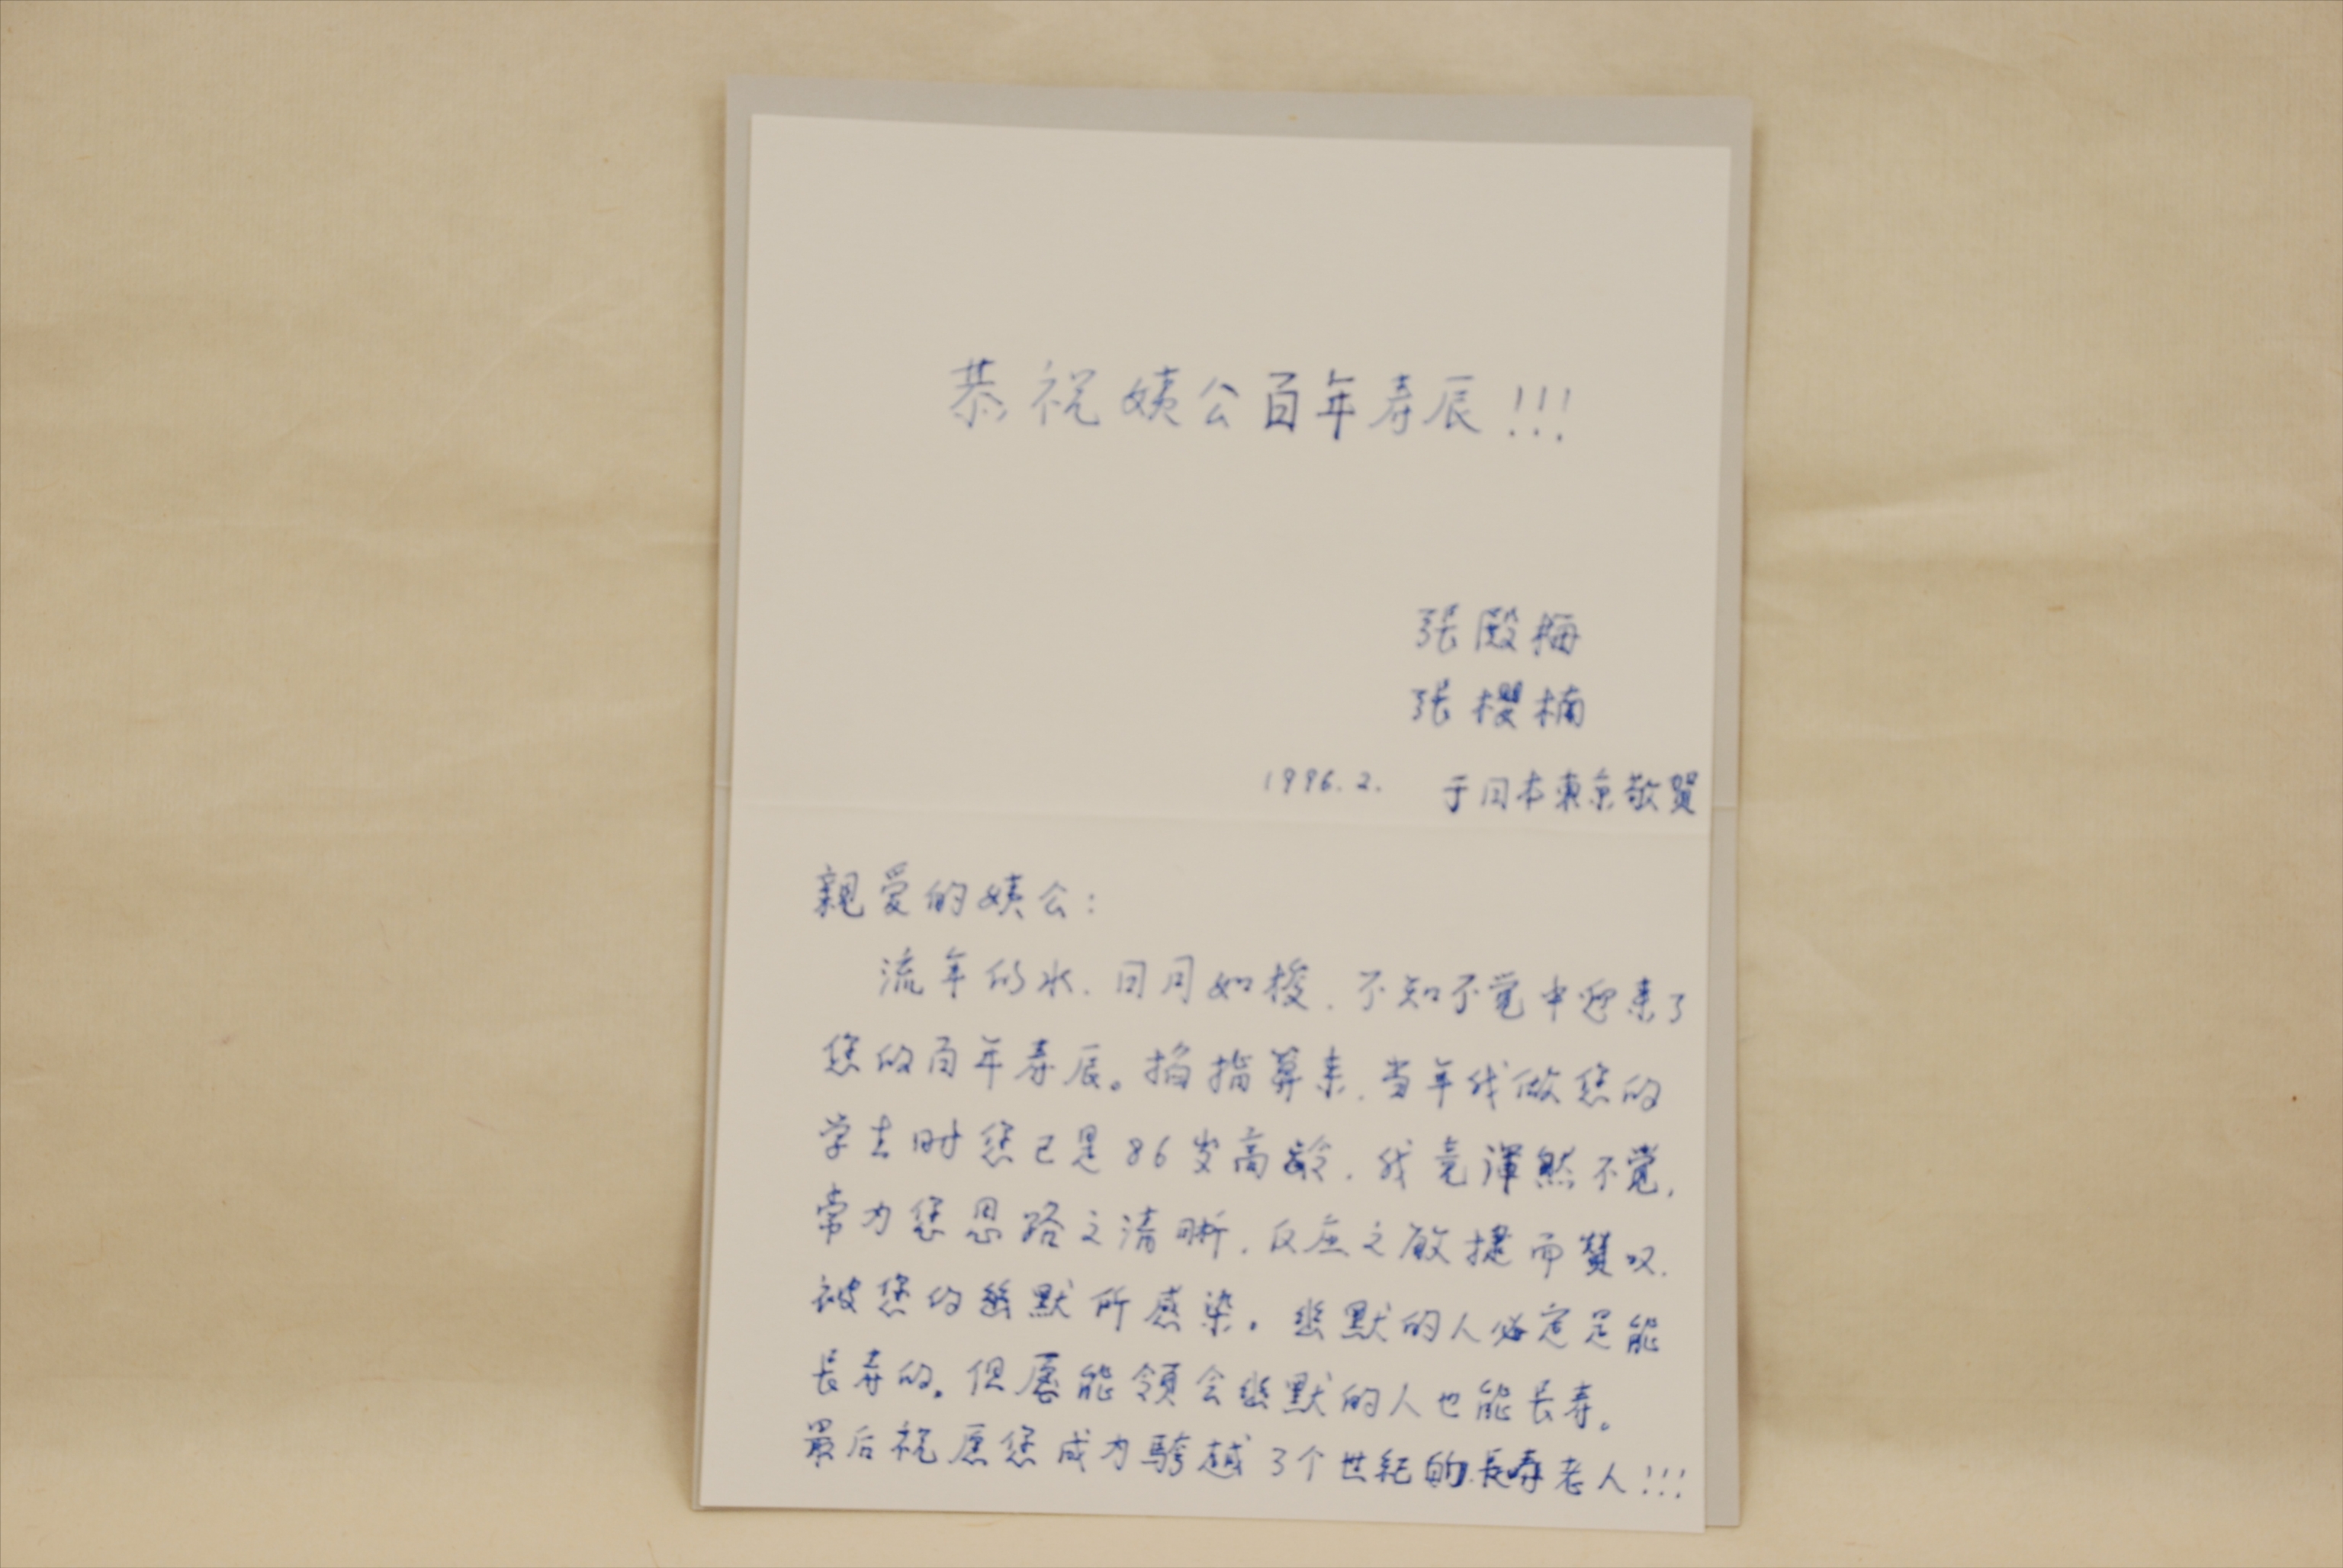 恭祝姨公百年寿辰!!!
张殿梅
张樱楠
1996.2. 于日本東京敬賀
親爱的姨公:
流年似水.日月如梭.不知不覚中迎来了
您的百年寿辰。掐指算来.当年我做您的
学生时您已是86岁高齡.我竟渾然不覚,
常为您思路之清晰.反应之敏捷而贊叹.
被您的幽默所感染。幽默的人必定是能
长寿的。但愿能領会幽默的人也能长寿。
最后祝愿您成为骻越3个世纪的長寿老人!!!